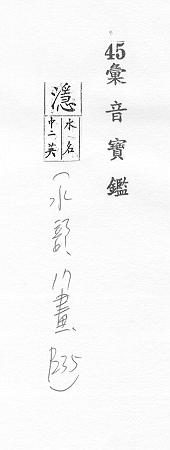 45彙音寶鑑
濦
水名
巾二英
(水部17畫B35)